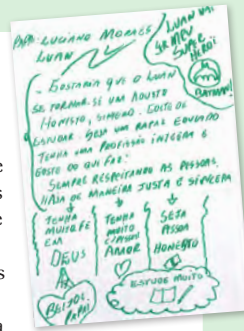 PAPAI: LUCIANO MORAES
LUAN
LUAN VAI
SER MEU
SUPER
HERÓI
BATMAN!
- GOSTARIA QUE O LUAN
SE TORNAR-SE UM ADULTO
HONESTO, SINCERO. GOSTE DE
ESTUDAR. SEJA UM RAPAZ EDUCADO
TENHA UMA PROFISSÃO INTEGRA E
GOSTE DO QUE FAZ.
SEMPRE RESPEITANDO AS PESSOAS.
HAJA DE MANEIRA JUSTA E SINCERA
TENHA
MUITO FÉ
EM
DEUS
TENHA
MUITO
AMOR
SEJA
PESSOA
HONESTO
BEIJOS!
PAPAI
ESTUDE MUITO
e
s
e
s
a